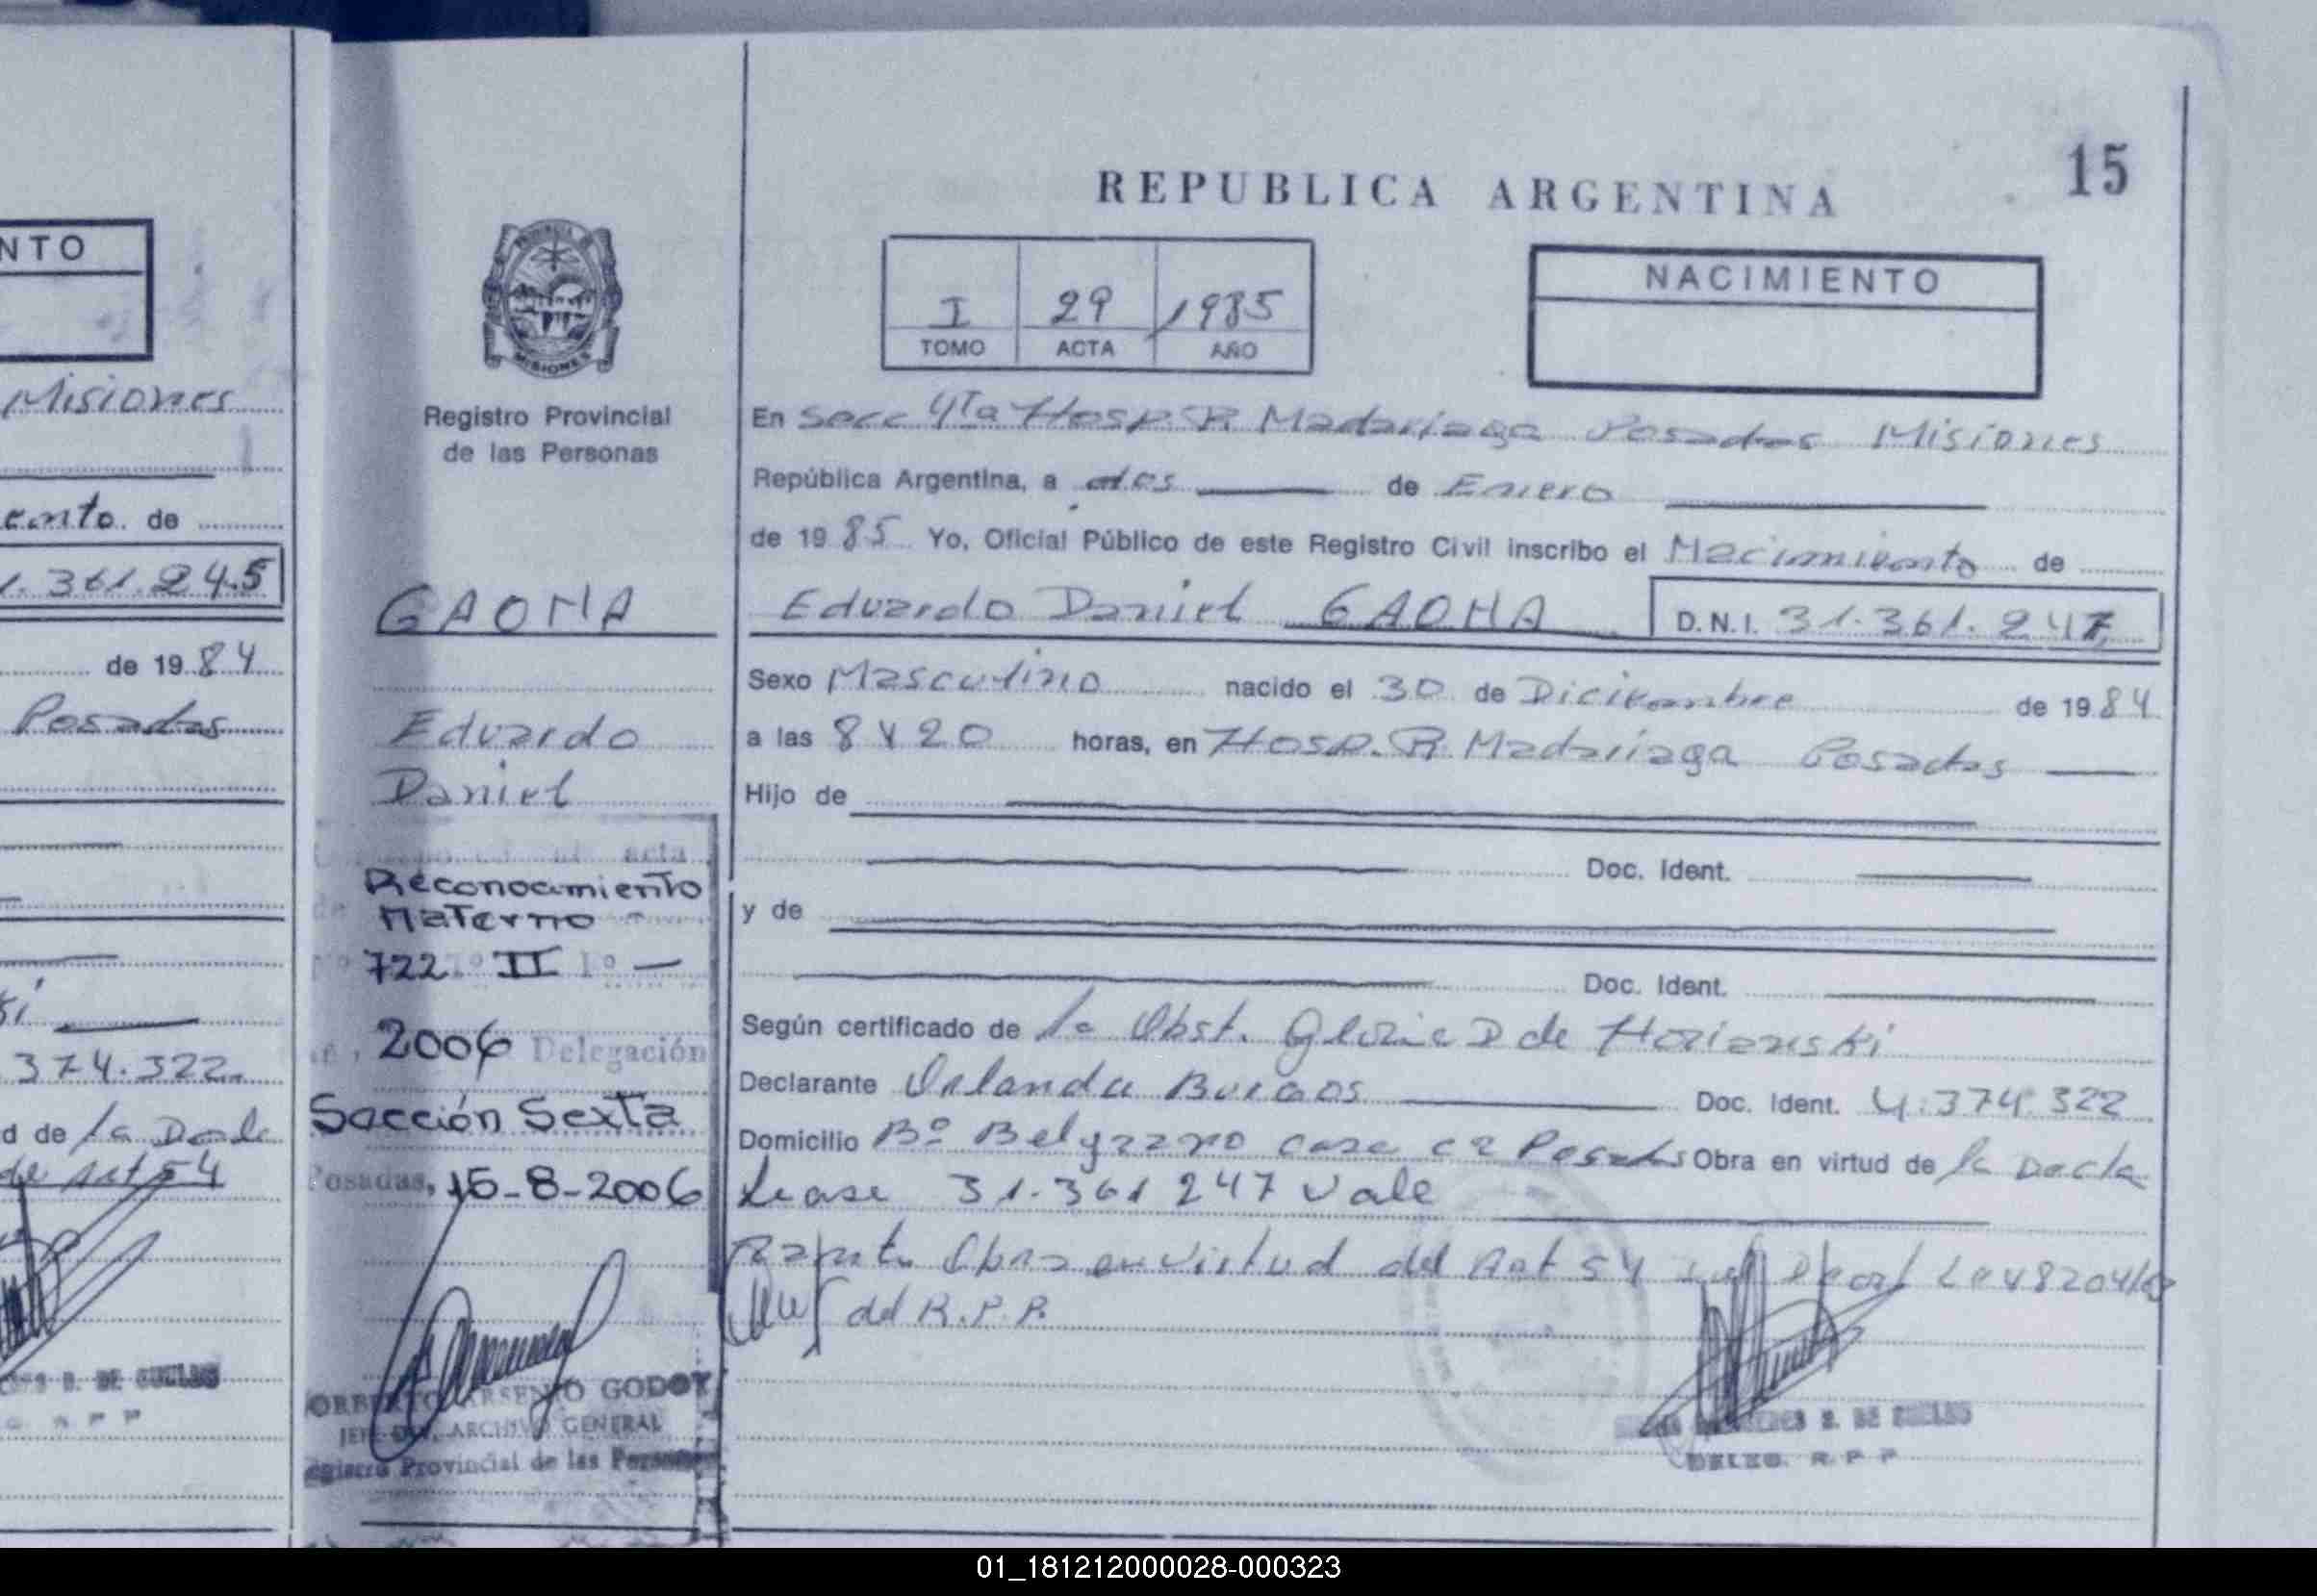 NTO
Misiones
ento de
1.361.245
de 1984
Posadas
374.322
d de la Decl
de Art 54
S. DE SUELAS
R P P
MISIONES
Registro Provincial
de las Personas
GAONA
Eduardo
Daniel
acta
Reconocimiento
Materno
Nº 722 Tº II Fº —
2006 Delegación
Sección Sexta
Posadas, 15-8-2006
ORBERTO ARSENIO GODOY
JEFE DIV. ARCHIVO GENERAL
egistro Provincial de las Personas
15
REPUBLICA ARGENTINA
I 29 1985
TOMO ACTA AÑO
NACIMIENTO
En Secc 4Ta Hosp. R. Madariaga Posadas Misiones
República Argentina, a dos de Enero
de 1985 Yo, Oficial Público de este Registro Civil inscribo el Nacimiento de
Eduardo Daniel GAONA D.N.I. 31.361.247
Sexo Masculino nacido el 30 de Diciembre de 1984
a las 8 y 20 horas, en Hosp. R. Madariaga Posadas
Hijo de
Doc. Ident.
y de
Doc. Ident.
Según certificado de la Obst. Gloria D de Horianski
Declarante Orlanda Burgos Doc. Ident. 4.374.322
Domicilio Bº Belgrano casa Posadas Obra en virtud de la Decla
Lease 31.361 247 Vale
Obra en virtud del Art 54
del R.P.P.
S. DE SUELAS
DELEG. R P P
01_181212000028-000323